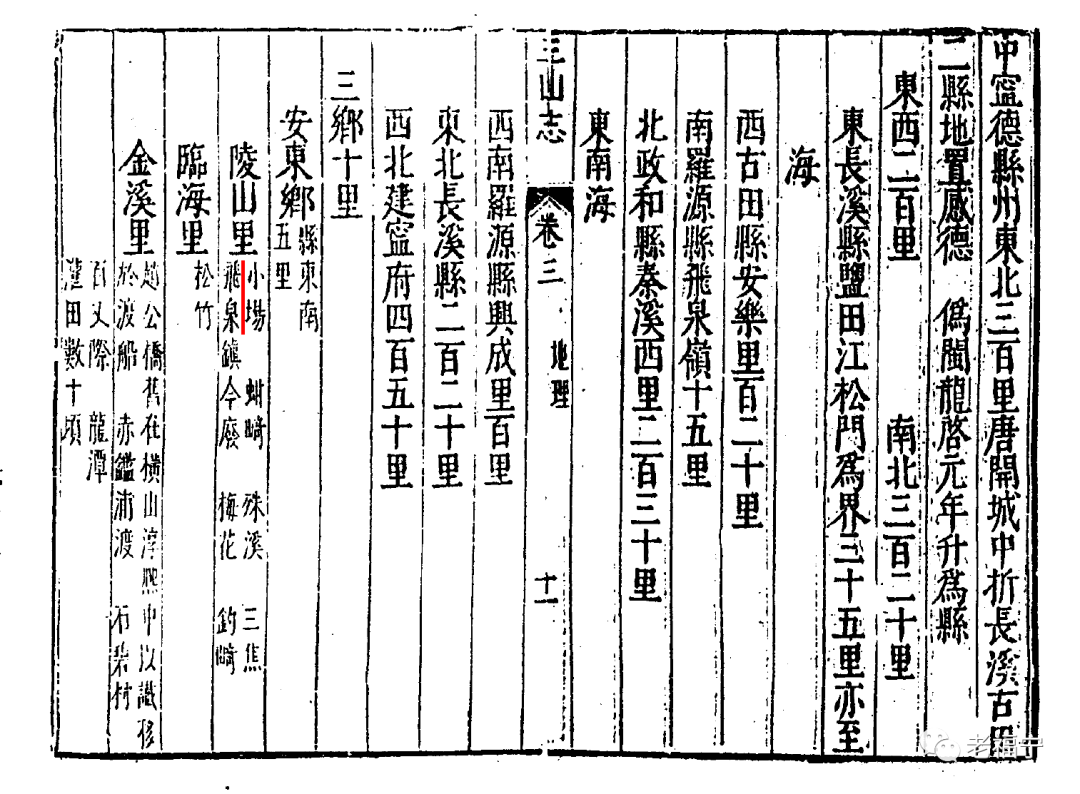 中寧德縣州東北三百里唐開城中折長溪古田
二縣地置感德 僞閩龍啓元年升爲縣
東西二百里 南北三百二十里
東長溪縣鹽田江松門爲界三十五里亦至
海
西古田縣安樂里百二十里
南羅源縣飛泉嶺十五里
北政和縣秦溪西里二百三十里
東南海
三山志 卷三 地理 十一
西南羅源縣興成里百里
東北長溪縣二百二十里
西北建寧府四百五十里
三鄉十里
安東鄉縣東南五里
陵山里小場 蚶﨑 殊溪 三焦
飛泉鎮今廢 梅花 釣﨑
臨海里松竹
金溪里趙公橋舊在橫山淳熙中以讖移
於渡船 赤鑑浦渡 石 村
百丈際 龍潭
灌田數十頃
老福宁